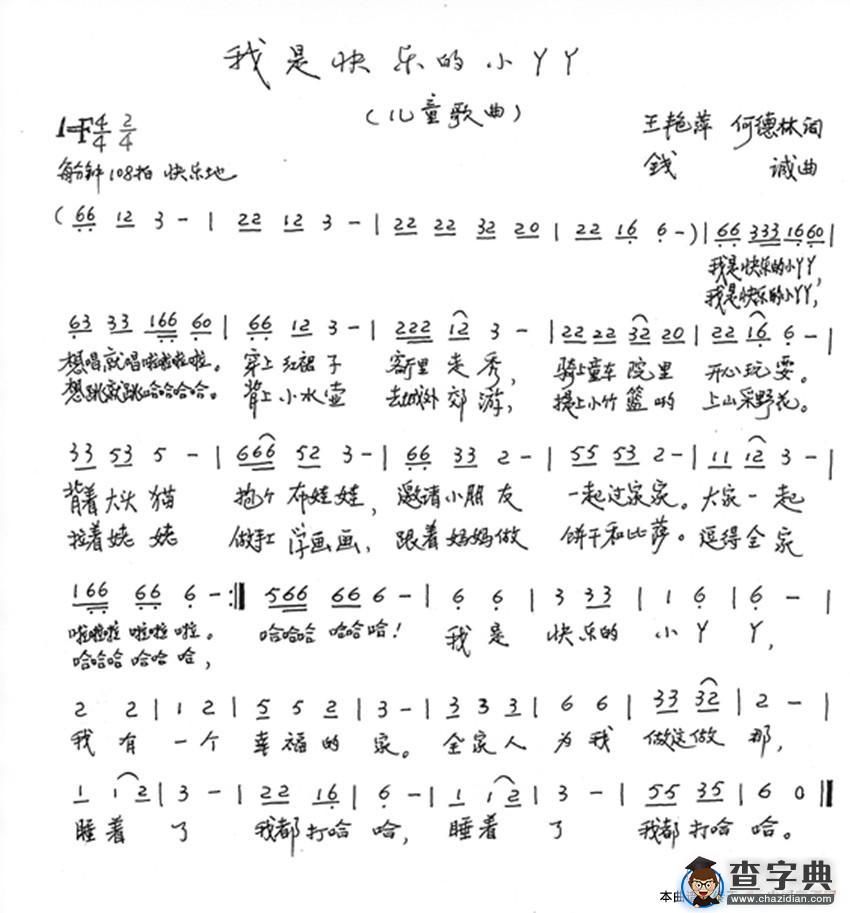 我是快乐的小丫丫
(儿童歌曲)
1=F 4/4 2/4
王艳萍 何德林词
每分钟108拍 快乐地
钱 诚曲
( 66 12 3 - | 22 12 3 - | 22 22 32 20 | 22 16 6 - ) | 66 333 16 60 |
我是快乐的小丫丫,
我是快乐的小丫丫,
63 33 166 60 | 66 12 3 - | 222 12 3 - | 22 22 32 20 | 22 16 6 - |
想唱就唱啦啦啦啦。 穿上红裙子 客厅里走秀, 骑上童车院里 开心玩耍。
想跳就跳哈哈哈哈。 背上小水壶 去城外郊游, 提上小竹篮哟 上山采野花。
33 53 5 - | 666 52 3 - | 66 33 2 - | 55 53 2 - | 11 12 3 - |
背着大头猫 抱个布娃娃, 邀请小朋友 一起过家家。 大家一起
拉着姥姥 做手工 学画画, 跟着妈妈做 饼干和比萨。 逗得全家
166 66 6 - :‖ 566 66 6 - | 6 6 | 3 33 | 1 6 | 6 - |
啦啦啦 啦啦 啦。 哈哈哈 哈哈 哈! 我是 快乐的 小丫丫,
哈哈哈 哈哈 哈,
2 2 | 1 2 | 5 5 2 | 3 - | 3 3 3 | 6 6 | 33 32 | 2 - |
我有一个幸福的家。 全家人为我 做这做那,
1 1 2 | 3 - | 22 16 | 6 - | 1 1 2 | 3 - | 55 35 | 6 0 ‖
睡着了 我都打哈哈, 睡着了 我都打哈哈。
本曲谱
查字典
www.chazidian.com